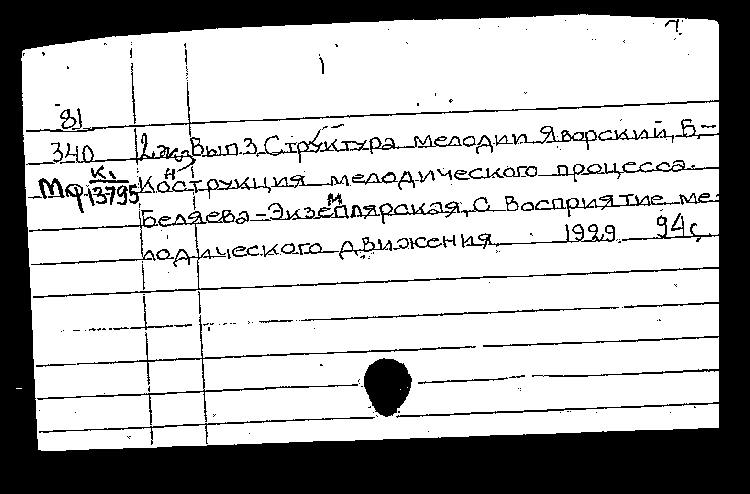 1
81
340 2 экз Вып.3. Структура мелодии. Яворский, Б.-
Мф К1 13795 Конструкция мелодического процесса.
Беляева-Экземплярская, С. Восприятие ме-
лодического движения. 1929 94с.